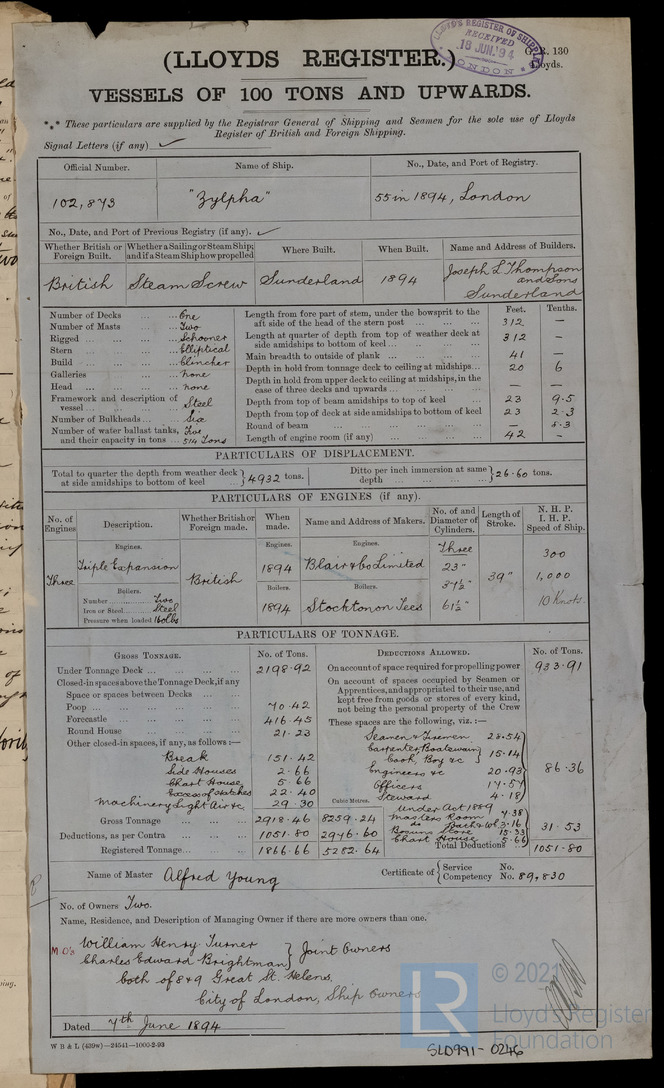 LLOYD'S REGISTER OF SHIPPING
RECEIVED
18 JUN. 94
LONDON
G.R. 130
Lloyds.
(LLOYDS REGISTER.)
VESSELS OF 100 TONS AND UPWARDS.
*** These particulars are supplied by the Registrar General of Shipping and Seamen for the sole use of Lloyds
Register of British and Foreign Shipping.
Signal Letters (if any)
Official Number. Name of Ship. No., Date, and Port of Registry.
102,873 "Zylpha" 55 in 1894, London
No., Date, and Port of Previous Registry (if any).
Whether British or Foreign Built. Whether a Sailing or Steam Ship; and if a Steam Ship how propelled Where Built. When Built. Name and Address of Builders.
British Steam Screw Sunderland 1894 Joseph L Thompson and Sons Sunderland
Number of Decks One
Number of Masts Two
Rigged Schooner
Stern Elliptical
Build Clincher
Galleries none
Head none
Framework and description of vessel Steel
Number of Bulkheads Six
Number of water ballast tanks, and their capacity in tons Five 514 Tons
Feet. Tenths.
Length from fore part of stem, under the bowsprit to the aft side of the head of the stern post 312 —
Length at quarter of depth from top of weather deck at side amidships to bottom of keel 312 —
Main breadth to outside of plank 41 —
Depth in hold from tonnage deck to ceiling at midships 20 6
Depth in hold from upper deck to ceiling at midships, in the case of three decks and upwards — —
Depth from top of beam amidships to top of keel 23 9.5
Depth from top of deck at side amidships to bottom of keel 23 2.3
Round of beam — 8.3
Length of engine room (if any) 42 —
PARTICULARS OF DISPLACEMENT.
Total to quarter the depth from weather deck at side amidships to bottom of keel 4932 tons. Ditto per inch immersion at same depth 26.60 tons.
PARTICULARS OF ENGINES (if any).
No. of Engines Description. Whether British or Foreign made. When made. Name and Address of Makers. No. of and Diameter of Cylinders. Length of Stroke. N. H. P. I. H. P. Speed of Ship.
Engines. Engines. Engines.
Three Triple Expansion British 1894 Blair & Co Limited Three 23" 37½" 61½" 39" 300 1,000 10 Knots
Boilers. Boilers. Boilers.
Number Two
Iron or Steel Steel
Pressure when loaded 160 lbs
1894 Stockton on Tees
PARTICULARS OF TONNAGE.
GROSS TONNAGE. No. of Tons. DEDUCTIONS ALLOWED. No. of Tons.
Under Tonnage Deck 2198.92
Closed-in spaces above the Tonnage Deck, if any
Space or spaces between Decks
Poop 70.42
Forecastle 416.45
Round House 21.23
Other closed-in spaces, if any, as follows:—
Break 151.42
Side Houses 2.66
Chart House 5.66
Excess of Hatches 22.40
Machinery Light Air &c. 29.30
Cubic Metres.
Gross Tonnage 2918.46 8259.24
Deductions, as per Contra 1051.80 2976.60
Registered Tonnage 1866.66 5282.64
On account of space required for propelling power 933.91
On account of spaces occupied by Seamen or Apprentices, and appropriated to their use, and kept free from goods or stores of every kind, not being the personal property of the Crew
These spaces are the following, viz.:—
Seamen & Firemen 28.54
Carpenter Boatswain Cook, Boy &c 15.14
Engineers &c 20.93
Officers 17.57
Steward 4.18
86.36
Under Act 1889
Masters Room 7.38
do Bath & W.C 3.16
Bosuns Store 15.33
Chart House 5.66
31.53
Total Deductions 1051.80
Name of Master Alfred Young Certificate of Service No. Competency No. 89,830
No. of Owners Two.
Name, Residence, and Description of Managing Owner if there are more owners than one.
M.O's William Henry Turner
Charles Edward Brightman } Joint Owners
both of 8 & 9 Great St. Helens,
City of London, Ship Owners
Dated 7th June 1894
W B & L (439w)—24541—1000-2-93
SLD991-0246
LR
© 2021
Lloyd's Register
Foundation